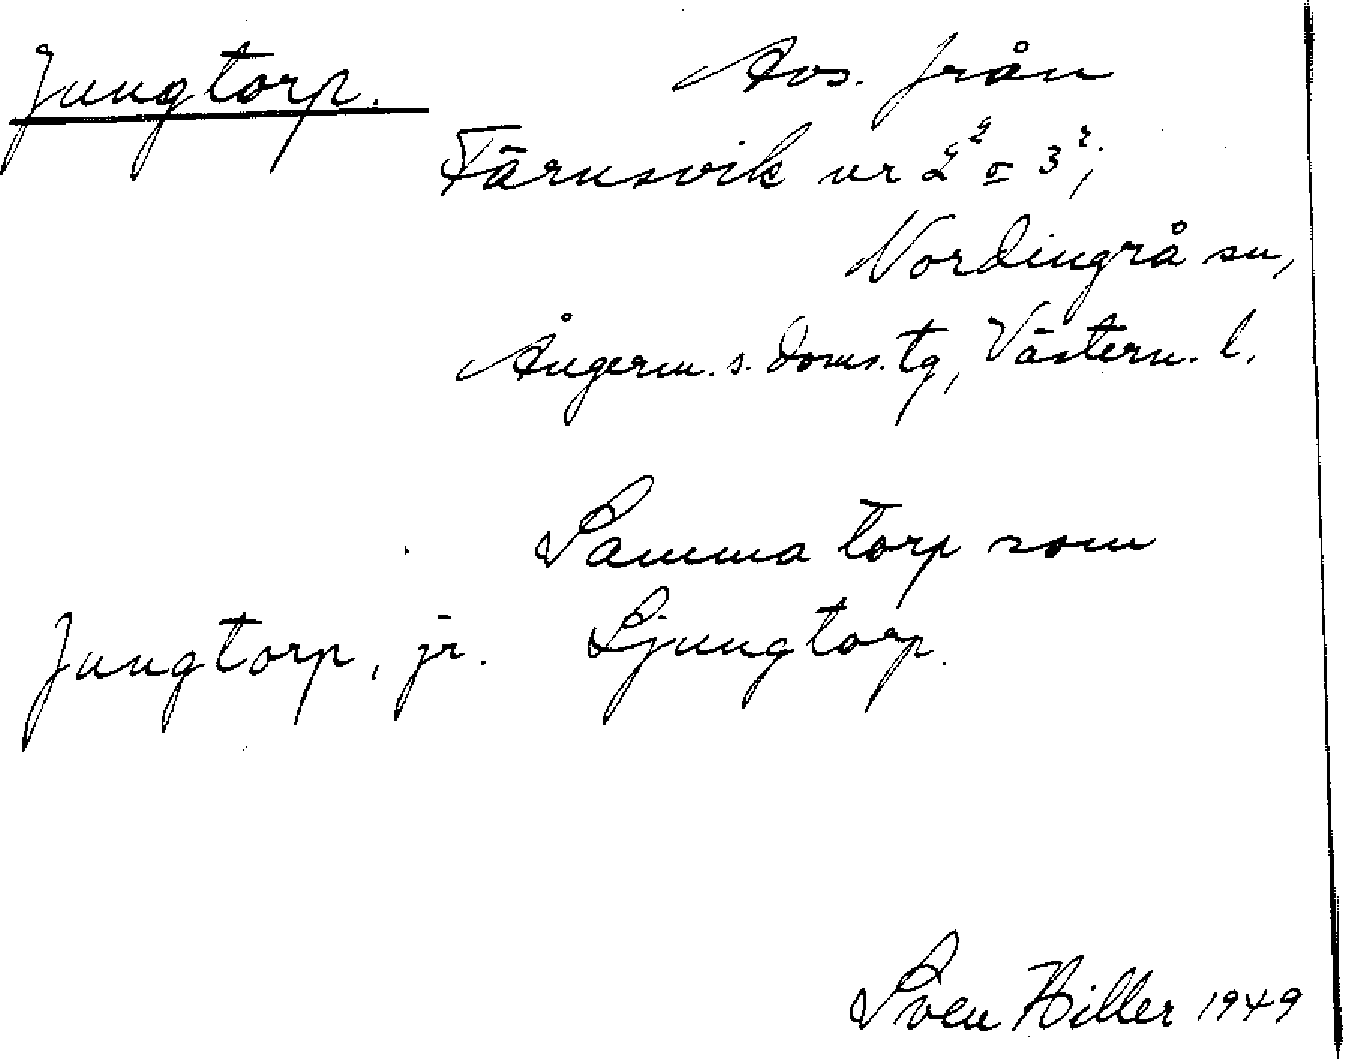 Jungtorp. Avs. från
Färnsvik nr 2² o 3²,
Nordingrå sn,
Ångerm. s. doms. tg, Västern. l.
Samma torp som
Jungtorp, jr. Ljungtorp.
Sven Hiller 1949